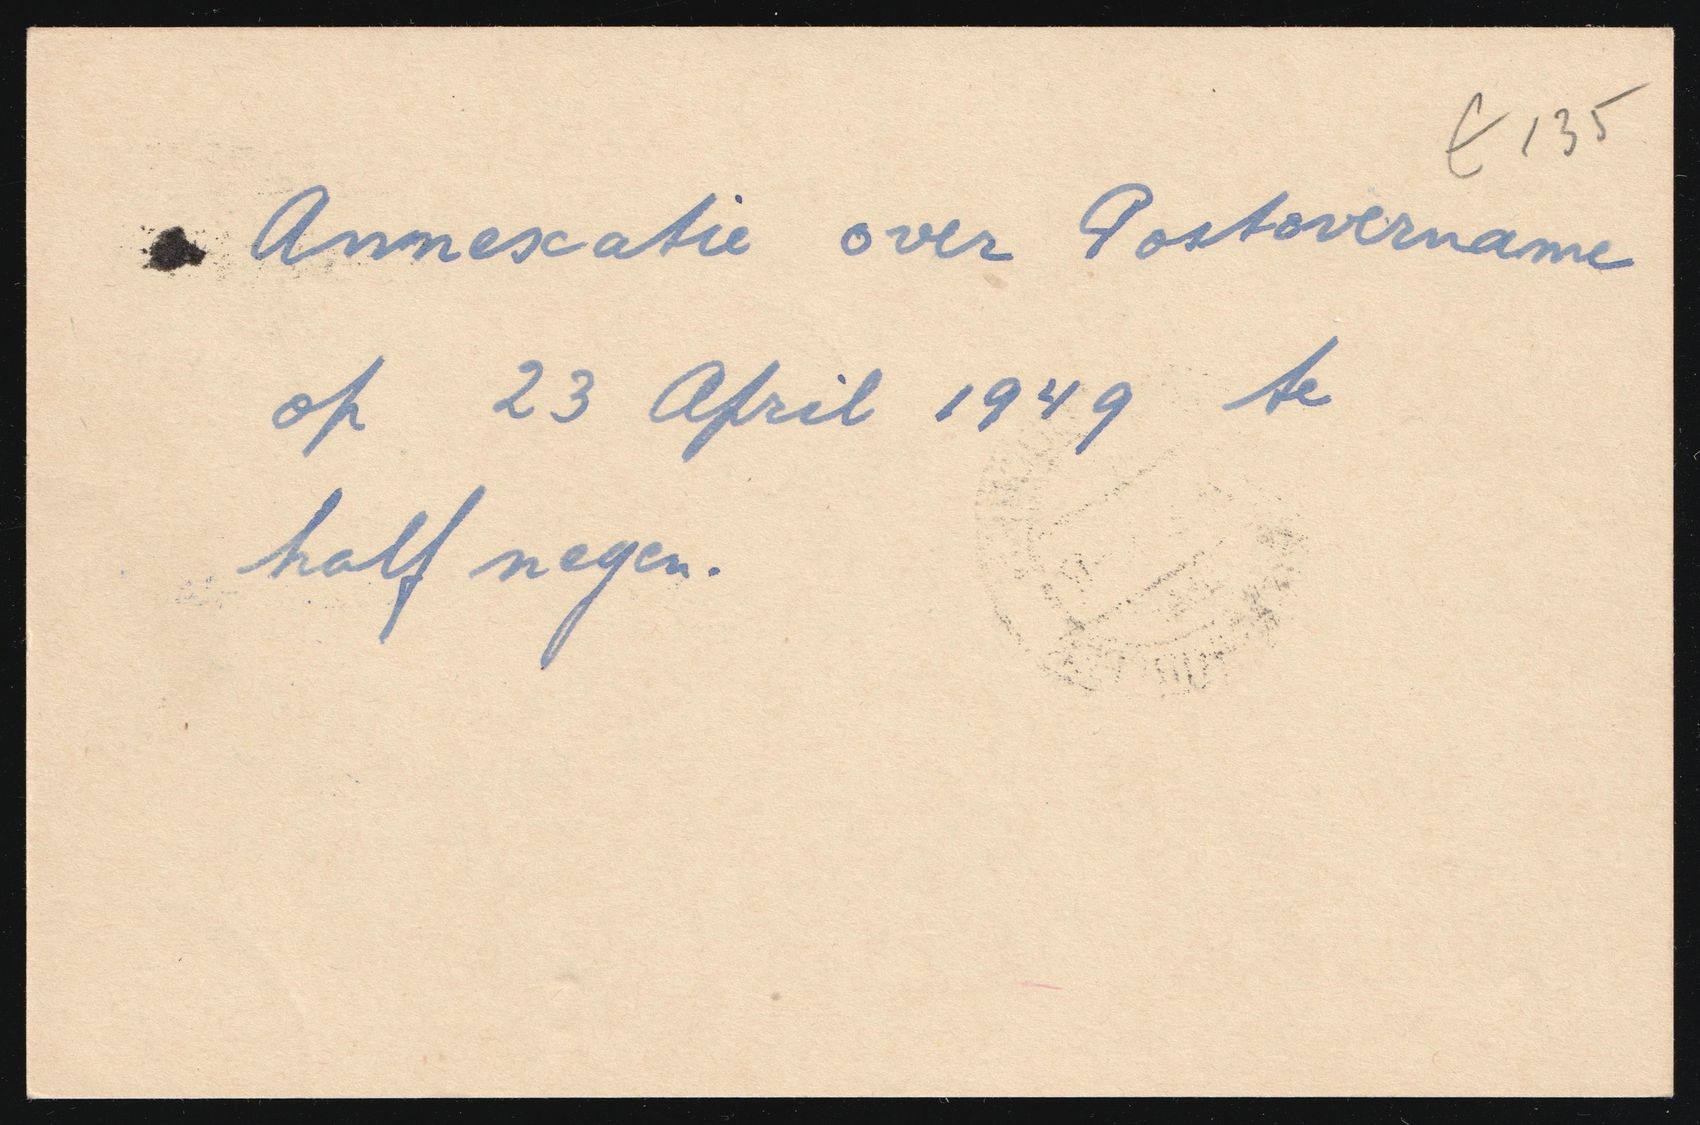 € 135
Annexatie over Postovername
op 23 April 1949 te
half negen.